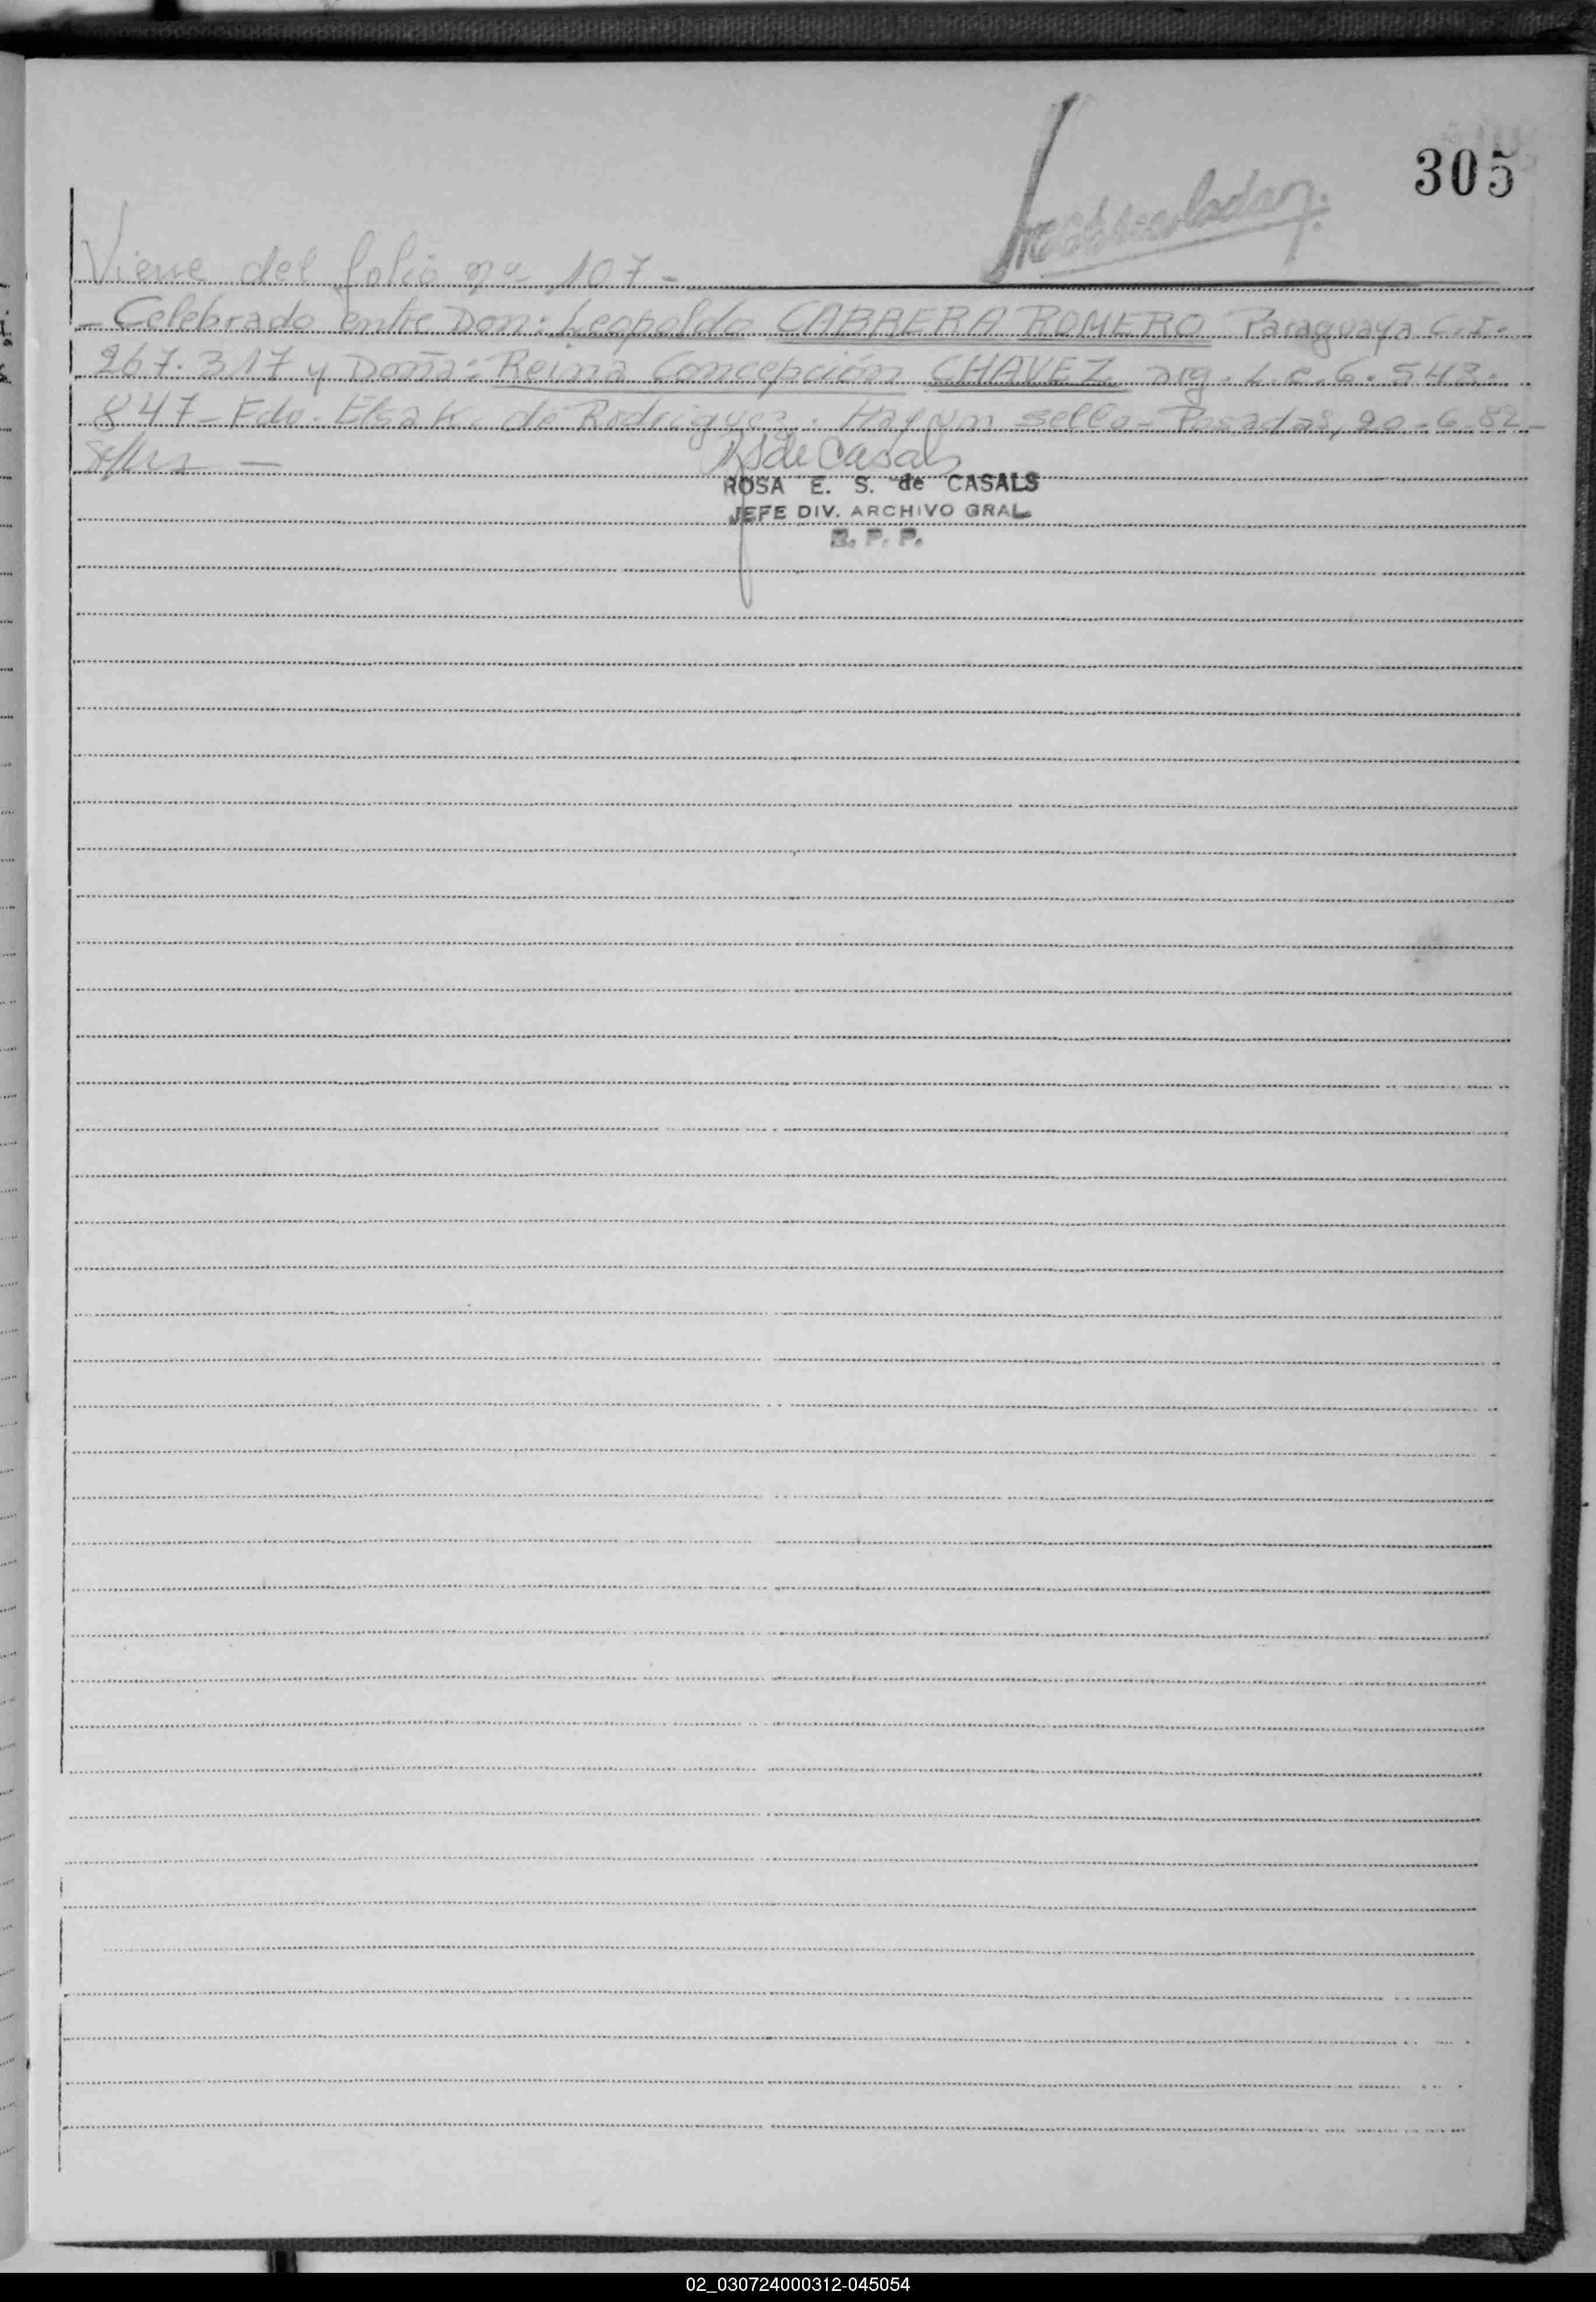 305
Viene del folio nº 107-
- Celebrado entre Don: Leopoldo CABRERA ROMERO Paraguaya C.I.
267.317 y Doña: Reina Concepción CHAVEZ arg. L.C. 6.543.
847- Fdo. Elsa K. de Rodriguez. Hay un sello- Posadas, 20-6-82-
RSdeCasals
ROSA E. S. de CASALS
JEFE DIV. ARCHIVO GRAL
R. P. P.
02_030724000312-045054